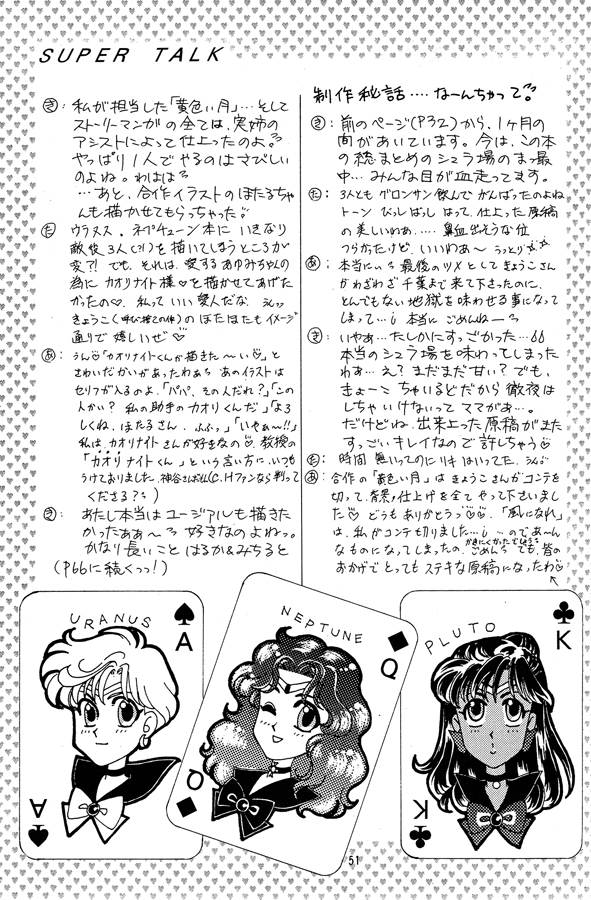 SUPER TALK
き: 私が担当した「黄色い月」…そして
ストーリーマンガの全ては、実姉の
アシストによって仕上ったのよ。
やっぱり1人でやるのはさびしい
のよね。わはは
…あと、合作イラストのほたるちゃ
んも描かせてもらっちゃった
た: ウラヌス、ネプチューン本に いきなり
敵役3人(?!)を描いてしまうところが
変?! でも、それは、愛するあゆみちゃんの
為に カオリナイト様♡を描かせてあげた
かったの♡ 私って いい愛人だな
きょうこく(呼び捨ての仲)のほたはたもイメージ
通りで嬉しいぜ♡
あ: うん「カオリナイトくんが描きた〜い♡」と
さわいだかいがあったわぁ あのイラストは
セリフが入るのよ。「パパ、その人だれ?」「この
人かい? 私の助手のカオリくんだ」「よろ
しくね、ほたるさん、ふふっ」「いやぁ〜!!」
私は、カオリナイトさんが好きなの 教授の
「カオリナイトくん」という言い方に、いつも
うけておりました。神谷さん(C.Hファンなら判って
くださる?)
き: あたし本当はユージアルも描きた
かったぁぁ〜 好きなのよねっ。
かなり長いこと はるか&みちると
(P66に続くっっ!)
制作秘話‥‥なーんちゃって
き: 前のページ(P32)から、1ヶ月の
間があいています。今は、この本
の総まとめのシュラ場のまっ最
中…みんな目が血走ってます。
た: 3人とも グロンサン飲んで がんばったのよね
トーン びしばし はって、仕上った原稿
の美しいわぁ‥‥ 鼻血出そうな位
つらかったけど、いいわぁ〜 うっとり
あ: 本当にいろ 最後のツメとして きょうこさん
がわざわざ千葉まで来て下さったのに、
とんでもない地獄を味わせる事になって
しまって…! 本当に ごめんねー
き: いやぁ…たしかにすっごかった…
本当のシュラ場を味わってしまった
わぁ…え? まだまだ甘い? でも、
きょーこ ちゃいるどだから徹夜は
しちゃ いけないって ママがぁ…。
だけどね、出来上った原稿がまた
すっごいキレイなので許しちゃう
た: 時間 無いってのにリキはいってた。
あ: 合作の「黄色い月」は きょうこさんがコンテを
切って、背景、仕上げを全てやって下さいまし
た どうもありがとう♡ 「風になれ」
は、私がコンテ切りました…! のであーん
なものになってしまったの、かきにくかったでしょう ごめんね でも、皆の
おかげでとってもステキな原稿になったわ
URANUS
A
A
NEPTUNE
Q
Q
PLUTO
K
K
51